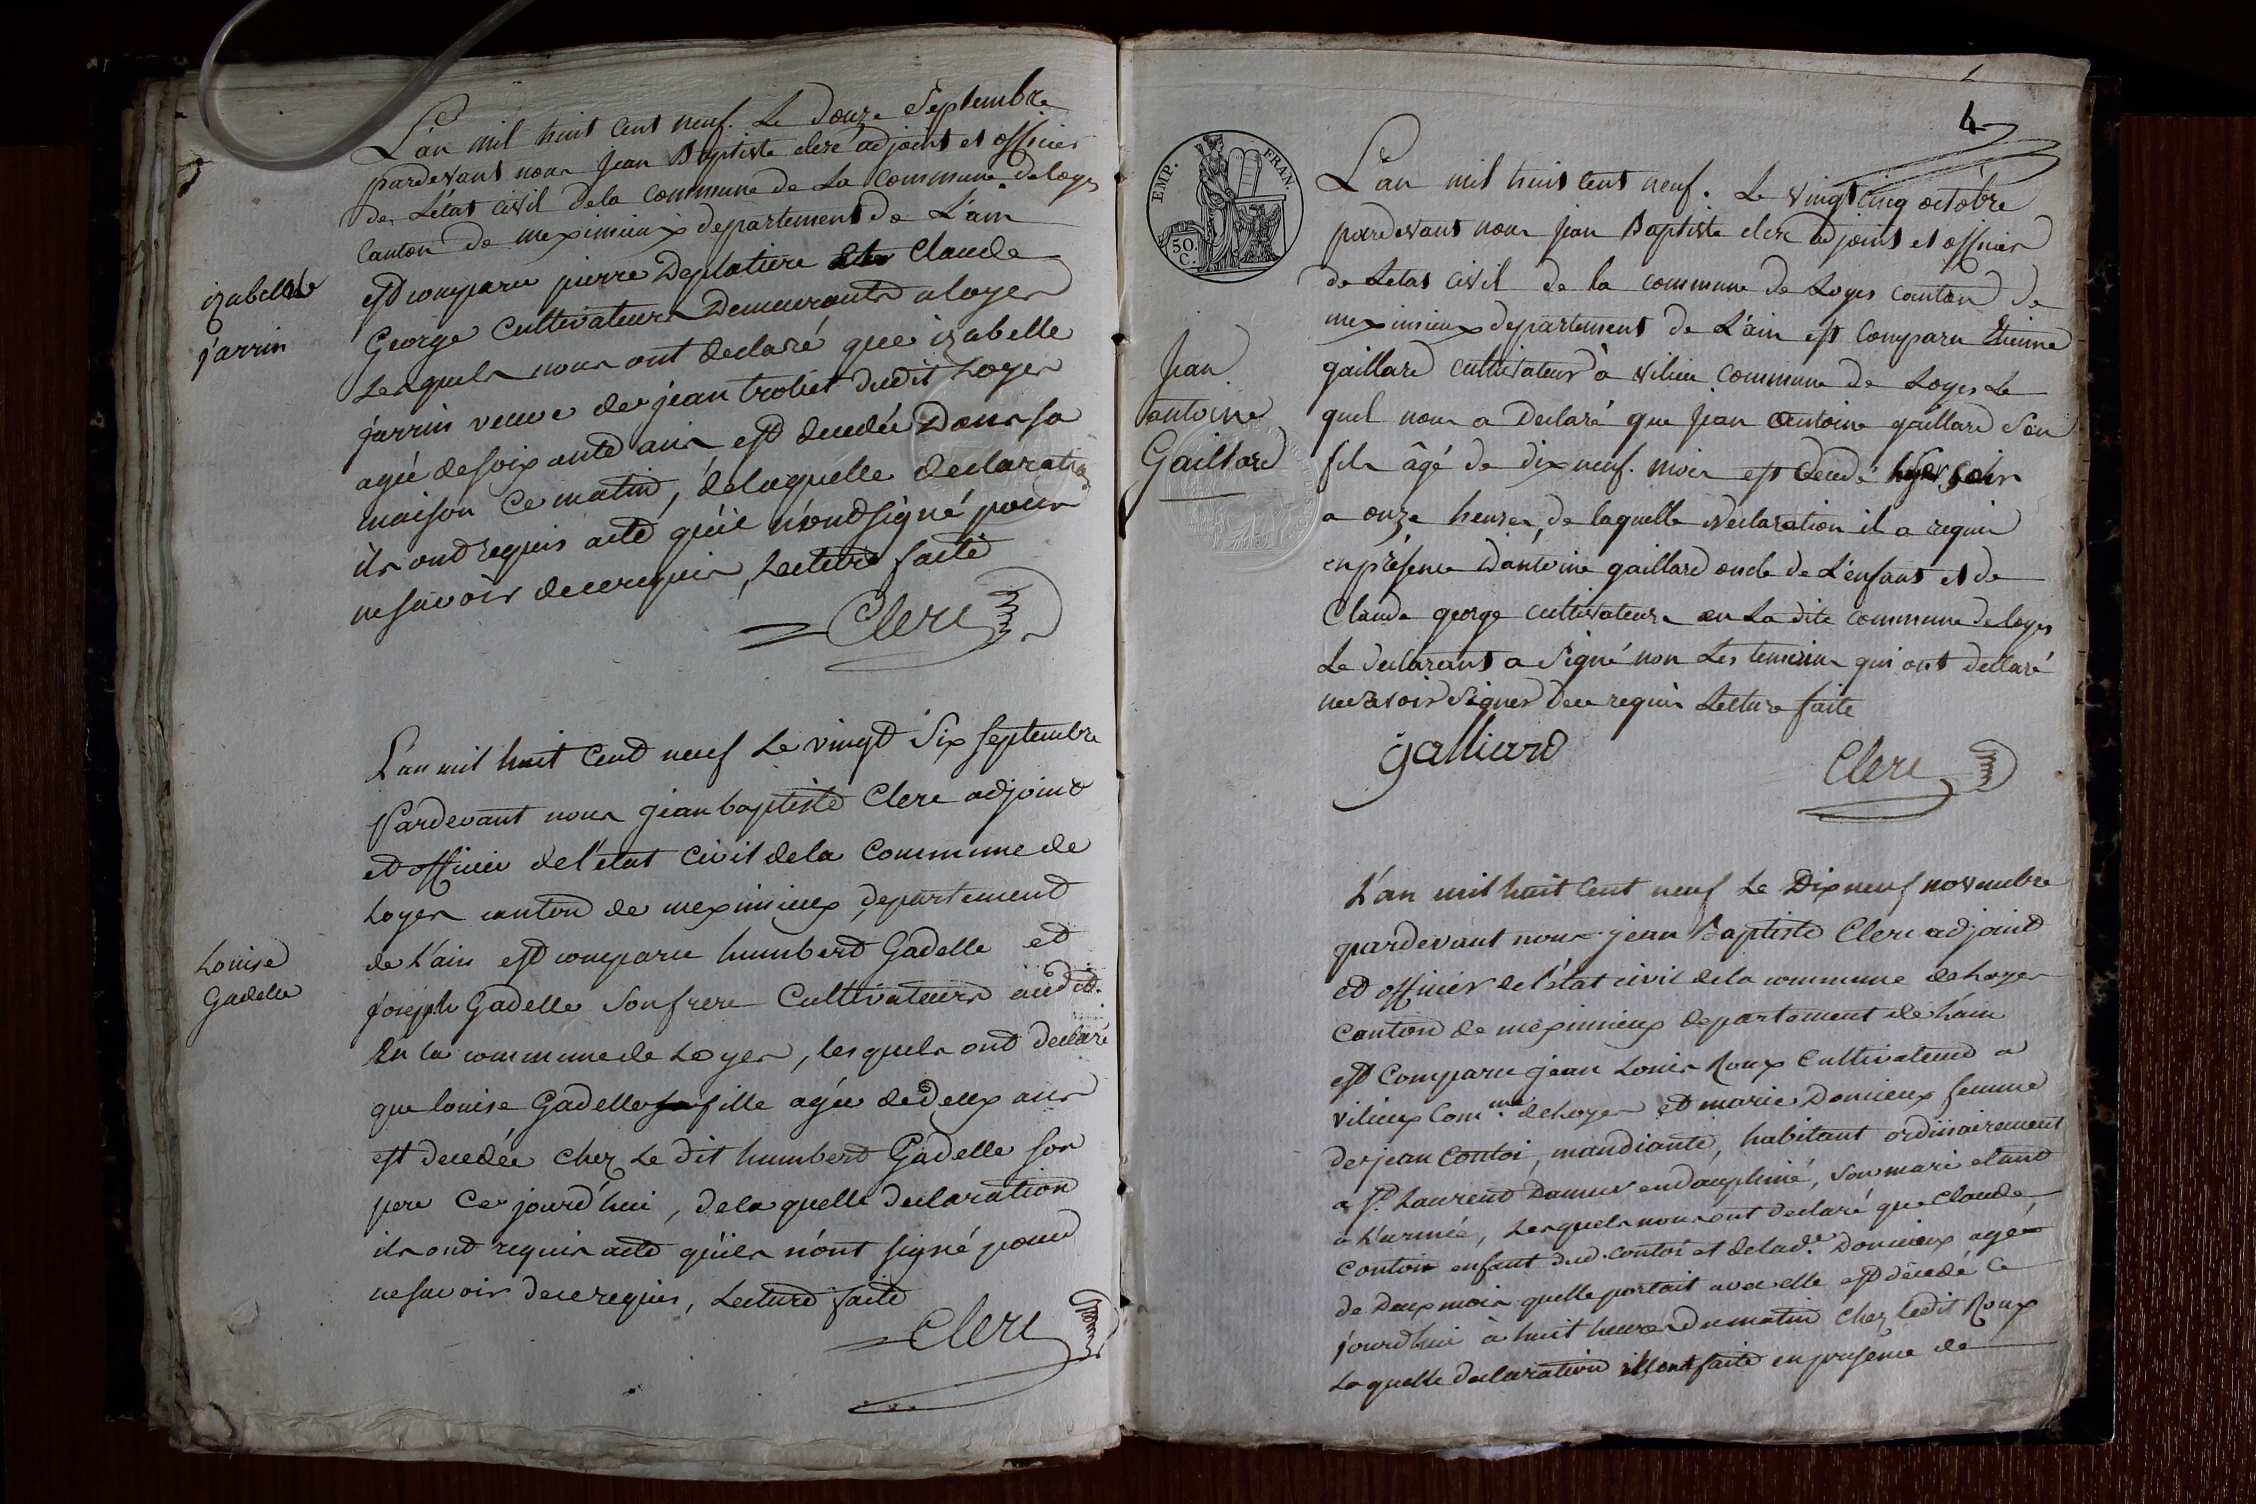 L'an mil huit cent neuf. Le douze Septembre
pardevant nous Jean Baptiste clerc adjoint et officier
de L'état civil dela commune de La commune de loyes
canton de meximieux departement de L'ain
est comparu pierre Deplatiere Claude
George cultivateurs Demeurants a loyes
Lesquels nous ont declaré que izabelle
jarrin veuve de jean troliet dudit Loyes
agée de soixante ans est decedée Dans sa
maison ce matin, de laquelle declaration
ils ont requis acte qu'il n'ont signé pour
ne savoir de ce requis, Lecture faite
Clerc
izabelle
jarrin
L'an mil huit cent neuf Le vingt Six septembre
Pardevant nous jean baptiste Clerc adjoint
et officier de l'état civil de la commune de
Loyes canton de meximieux departement
de L'ain est comparu humbert Gadelle et
joseph Gadelle Son frere Cultivateurs audit.
En la commune de Loyes, lesquels ont declaré
que louise Gadelle sa fille agée de deux ans
est decedée chez Le dit humbert Gadelle son
pere Ce jourd'hui, de la quelle declaration
ils ont requis acte qu'ils n'ont signé pour
ne savoir de ce requis, Lecture faite
Clerc
Louise
Gadelle
4
EMP. FRAN.
50. C.
L'an mil huit cent neuf. Le vingt cinq octobre
pardevant nous Jean Baptiste clerc adjoint et officier
de Letat civil de la commune de Loyes canton de
meximieux departement de L'ain est comparu Etienne
gaillard cultivateur à vilieu commune de Loyes Le
quel nous a declaré que Jean Antoine gaillard Son
fils âgé de dix neuf. mois est decedé hyer soir
a onze heures, de laquelle declaration il a requis
en présence D'antoine gaillard oncle de L'enfant et de
Claude george cultivateurs en La dite commune de loyes
Le declarant a Signé non Les temoins qui ont declaré
ne savoir Signer de ce requis Lecture faite
galliard
Clerc
Jean
antoine
Gaillard
L'an mil huit cent neuf Le Dix neuf novembre
pardevant nous jean Baptiste Clerc adjoint
et officier de l'état civil de la commune de Loyes
canton de meximieux departement de L'ain
est comparu jean Louis Roux Cultivateur a
vilieux Com.me de Loyes et marie Donieux femme
de jean Contoi, mandiante, habitant ordinairement
a St. Laurent Damur en dauphiné, Son mari etant
a L'armée, Lesquels nous ont declaré que Claude
contoi enfant dud. contoi et de lad.e Donieux agé
de Deux mois quelle portait avec elle est décédé Ce
jourd'hui à huit heures du matin chez ledit Roux
La quelle declaration ils ont faite en presence de